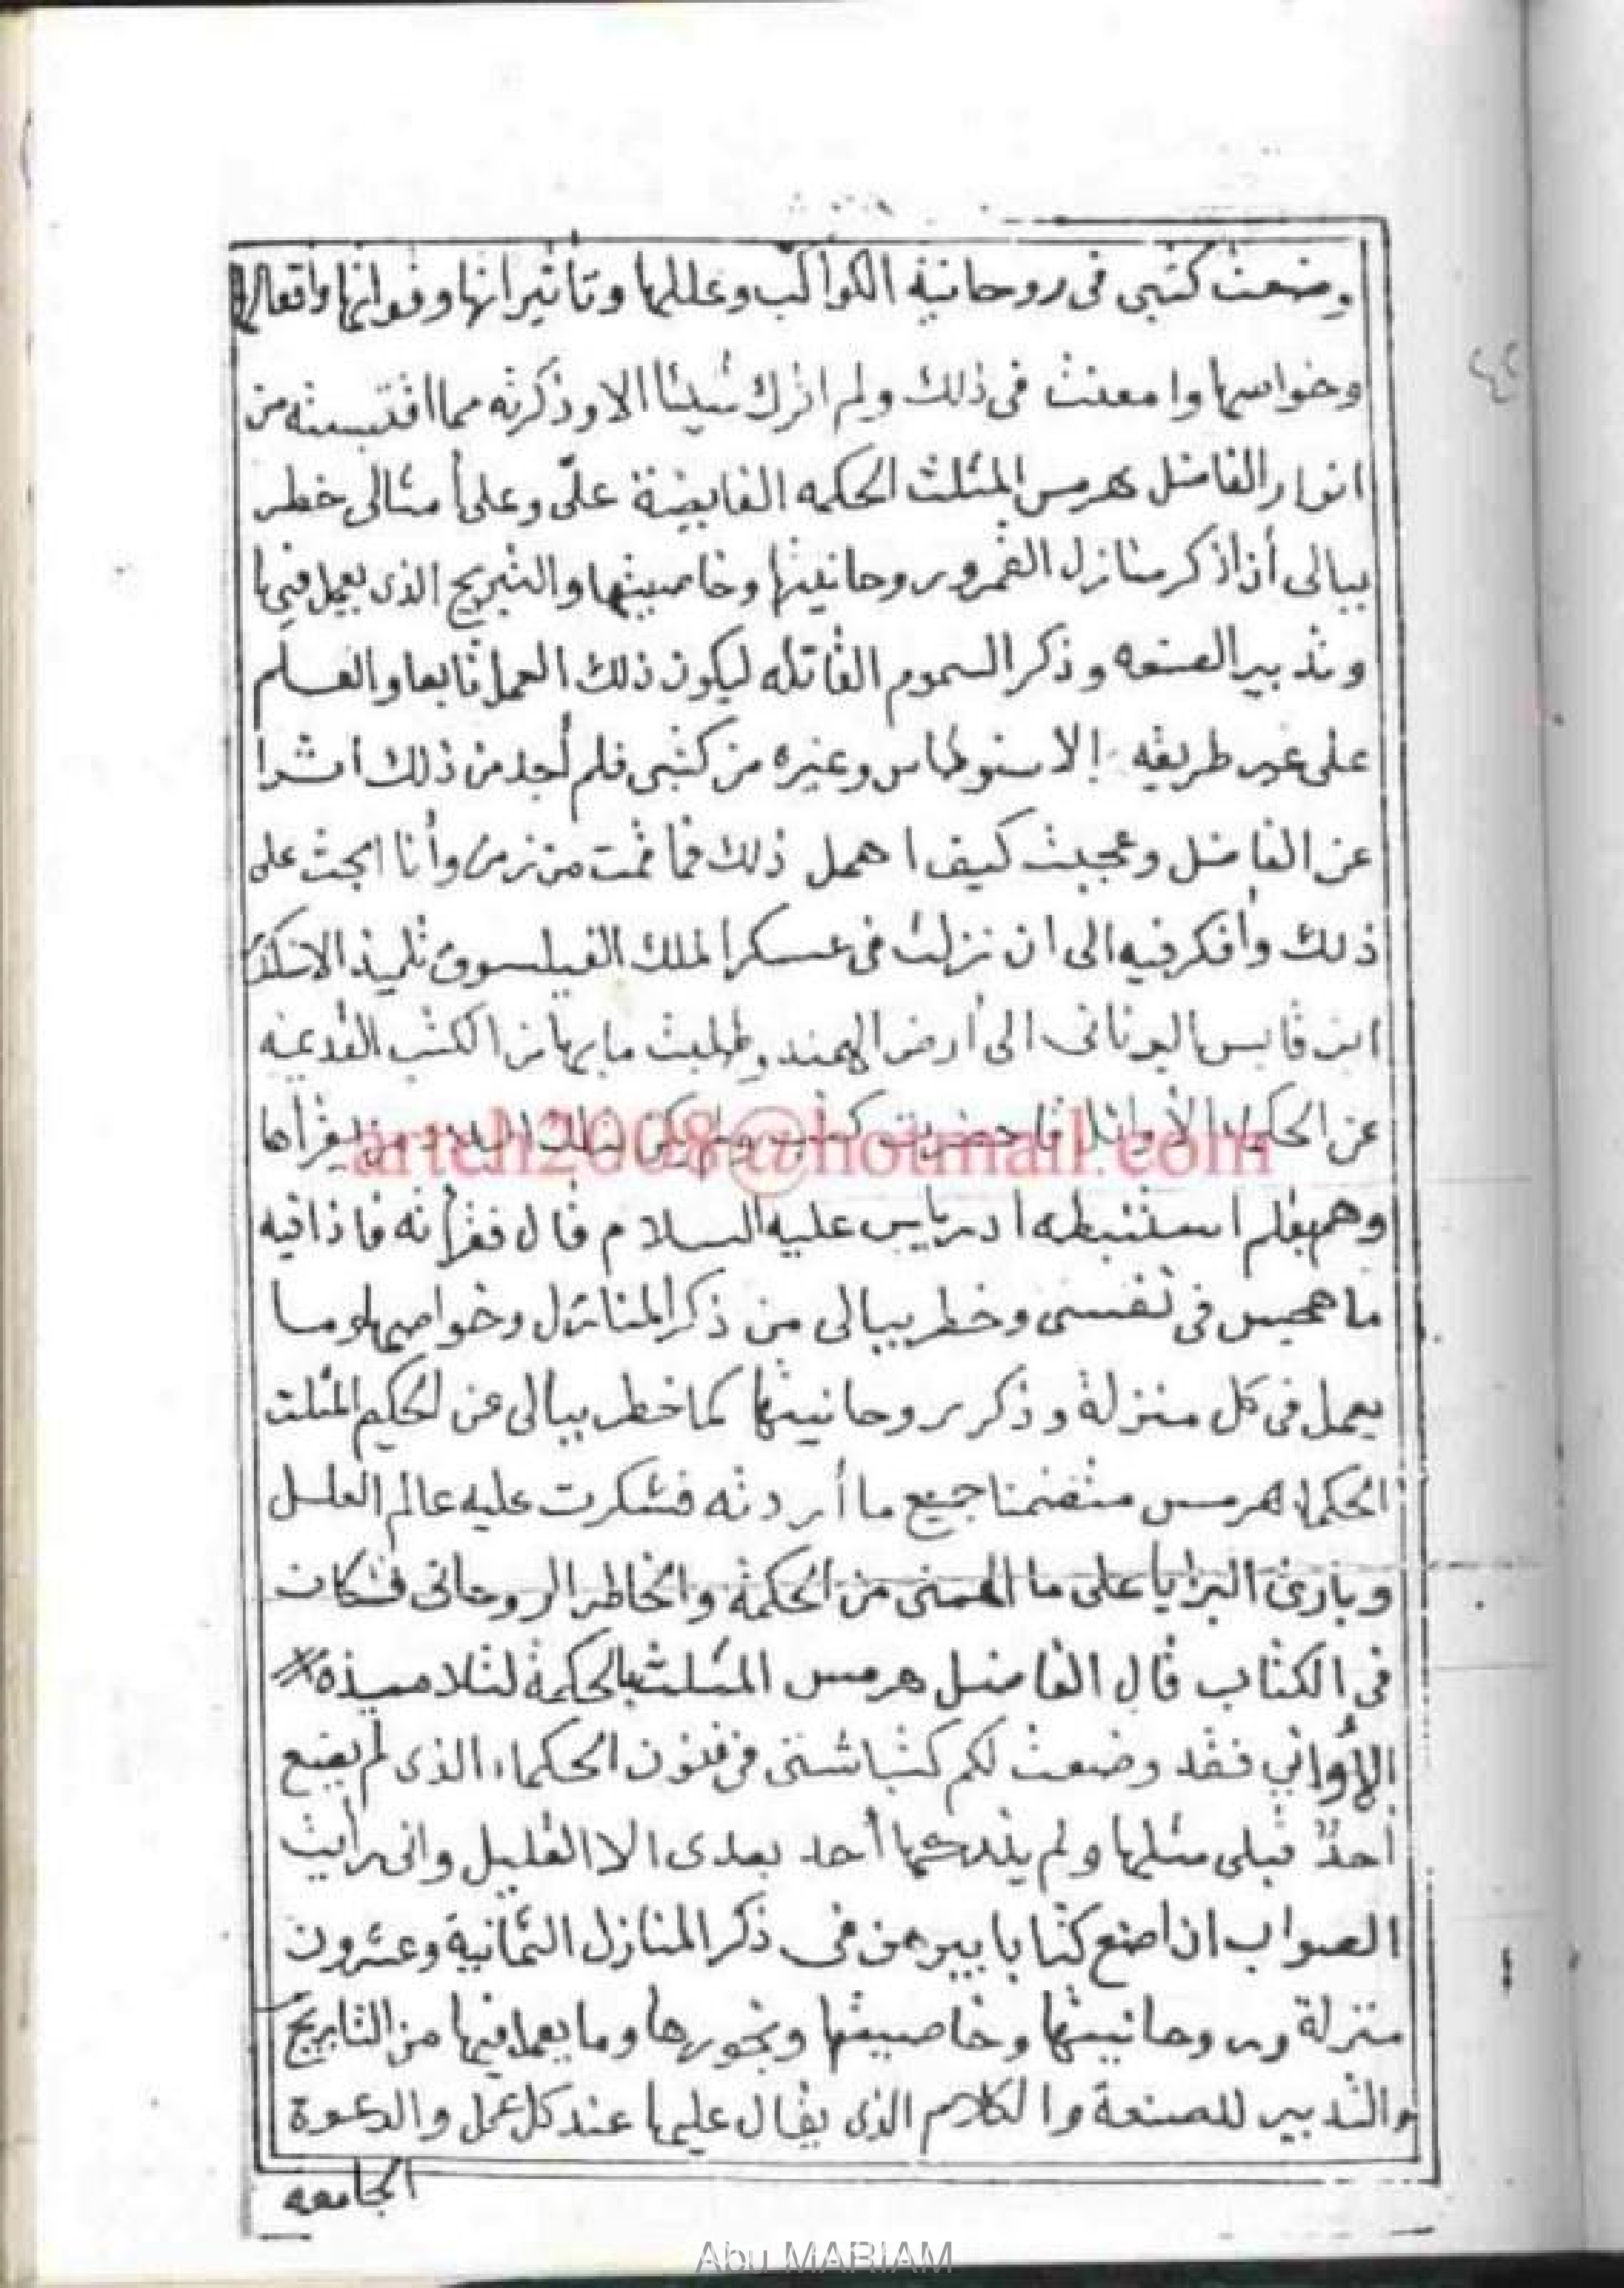 وضعت كتبى فى روحانية الكواكب وعللها وتأثيراتها وقواتها وافعالها
وخواسها وامعنت فى ذلك ولم اترك شيئا الا وذكرته مما اقتبسته من
انوار الفاضل هرمس المثلث الحكمه الفايضة علىّ وعلى أمثالى خطر
ببالى أن اذكر منازل القمر وروحانيتها وخاصيتها والتبريج الذى يعمل فيها
وتدبير الصنعه وذكر السموم القاتله ليكون ذلك العمل تابعا والعلم
على غير طريقه الاسنوطاس وغيره من كتبى فلم أجد من ذلك أثرا
عن الفاضل وعجبت كيف اهمل ذلك فما نمت من زمن وأنا ابحث على
ذلك وأفكر فيه الى ان نزلت فى عسكر الملك الفيلسوف تلميذ الاسكندر
ابن قابس اليونانى الى أرض الهند وطلبت ما بها من الكتب القديمه
عن الحكماء الأوائل فاحضرت كتب ولم يكن بتلك البلاد من يقرأها
artch2008@hotmail.com
وهم بقلم استنبطه ادريايس عليه السلام قال فقرأته فاذا فيه
ما همس فى نفسى وخطر ببالى من ذكر المنازل وخواصها وما
يعمل فى كل منزلة وذكر روحانيتها كما خطر ببالى عن الحكيم المثلث
الحكما هرمس متضمنا جميع ما أردته فشكرت عليه عالم العلل
وبارئ البرايا على ما الهمنى من الحكمة والخاطر الروحانى فكان
فى الكتاب قال الفاضل هرمس المثلث بالحكمة لتلاميذه
فقد وضعت لكم كتبا شتى فى فنون الحكماء الذى لم يضع
أحدٌ قبلى مثلها ولم يدركها أحد بعدى الا القليل وانى رأيت
الصواب ان اضع كتابا يبرهن فى ذكر المنازل الثمانية وعشرون
منزلة وروحانيتها وخاصيتها وبخورها وما يعمل فيها من التابريج
والتدبير للصنعة والكلام الذى يقال عليها عند كل عمل والدعوة
الجامعه
Abu MARIAM